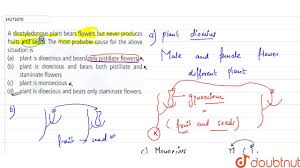 14273070
A dicotyledonous plant bears flowers but never produces
fruits and seeds. The most probable cause for the above
situation is
(a) plant is dioecious and bears only pistillate flowers
(b) plant is dioecious and bears both pistillate and
staminate flowers
(c) plant is monoecious
(d) plant is dioecious and bears only staminate flowers.
a) plant diecius
Male and female flower
different plant
b)
fruit
seed
(fruit and seeds)
c) Monoecius
doubtnut